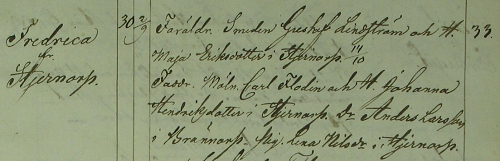 Fredrica
fr.
Stjernorp.
30 2/9
Föräldr. Smeden Gustaf Lindström och H.
Maja Ericsdotter i Stjernorp. 11/10
Faddr. Måln. Carl Flodin och H. Johanna
Hendriksdotter i Stjernorp. Dr. Anders Larsson
i Brännorp. Pig. Lena Nilsdr i Stjernorp.
33.